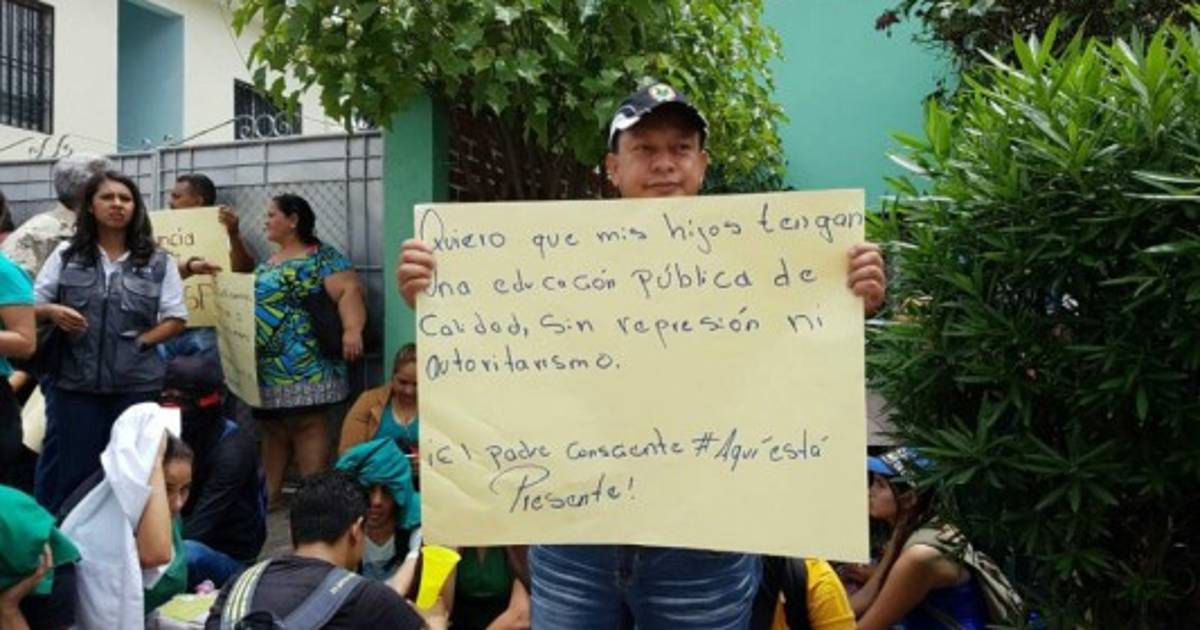 Quiero que mis hijos tengan
Una educación pública de
Calidad, Sin represión ni
autoritarismo.
¡El padre consciente #Aquíestá
Presente!
ncia